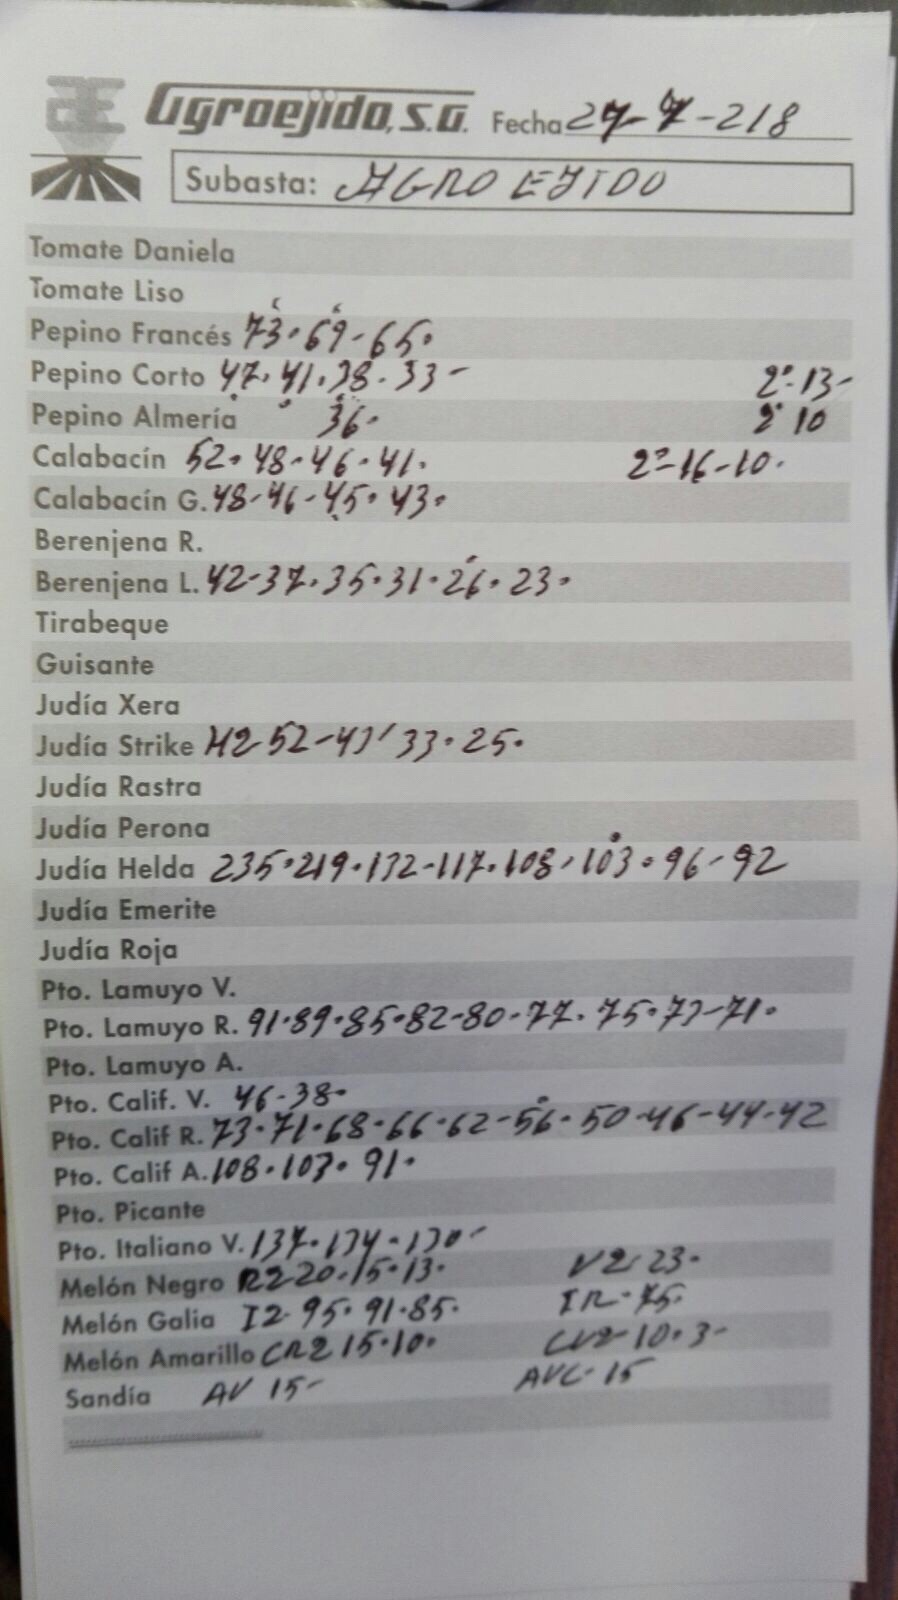 Agroejido, S.A. Fecha 27-7-218
Subasta: AGRO EJIDO
Tomate Daniela
Tomate Liso
Pepino Francés 73·69-65·
Pepino Corto 47·41·38·33- 2ª-13-
Pepino Almería 36· 2ª 10
Calabacín 52·48-46·41· 2ª-16-10·
Calabacín G. 48-46-45·43·
Berenjena R.
Berenjena L. 42-37·35·31·26·23·
Tirabeque
Guisante
Judía Xera
Judía Strike 52-43 33·25·
Judía Rastra
Judía Perona
Judía Helda 235·219·132-117·108·103·96-92
Judía Emerite
Judía Roja
Pto. Lamuyo V.
Pto. Lamuyo R. 91·89·85·82-80-77·75·73-71·
Pto. Lamuyo A.
Pto. Calif. V. 46-38·
Pto. Calif R. 73·71·68·66·62-56·50-46-44-42
Pto. Calif A. 108·103·91·
Pto. Picante
Pto. Italiano V. 137·134·130-
Melón Negro R2 20·15·13· V2 23·
Melón Galia I2 95·91·85· IR·75·
Melón Amarillo CR2 15·10· CV2 10·3-
Sandía AV 15- AVC-15